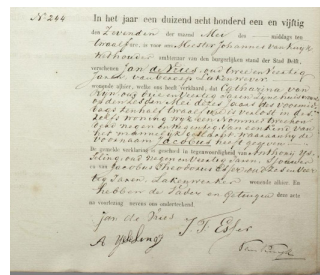 N.o 244
In het jaar een duizend acht honderd een en vijftig
den Zevenden der maand Mei des middags ten
twaalf ure, is voor ons Meester Johannes van Kuyk
Wethouder ambtenaar van den burgerlijken stand der Stad Delft,
verschenen Jan de Vries, oud twee en Veertig
Jaren, van beroep Lakenwever
wonende alhier, welke ons heeft verklaard, dat Catharina van
Rijn, oud
op den zesden Mei dezes jaars des voormid
dags ten half twaalf ure is verlost in des
zelfs woning wijk een nommer twee hon
derd negen en negentig van een kind van
het mannelijk geslacht, waaraan hij de
voornaam Jacobus heeft gegeven
De gemelde verklaring is geschied in tegenwoordigheid van Anthony IJs
seling, oud negen en Veertig Jaren,
van Jacobus Theodorus Esser, oud zes en Veer
tig Jaren, Lakenwerker wonende alhier. En
hebben de Vader en Getuigen deze acte
na voorlezing nevens ons onderteekend.
Jan de Vries
J. T. Esser
A IJsseling
Van Kuyk